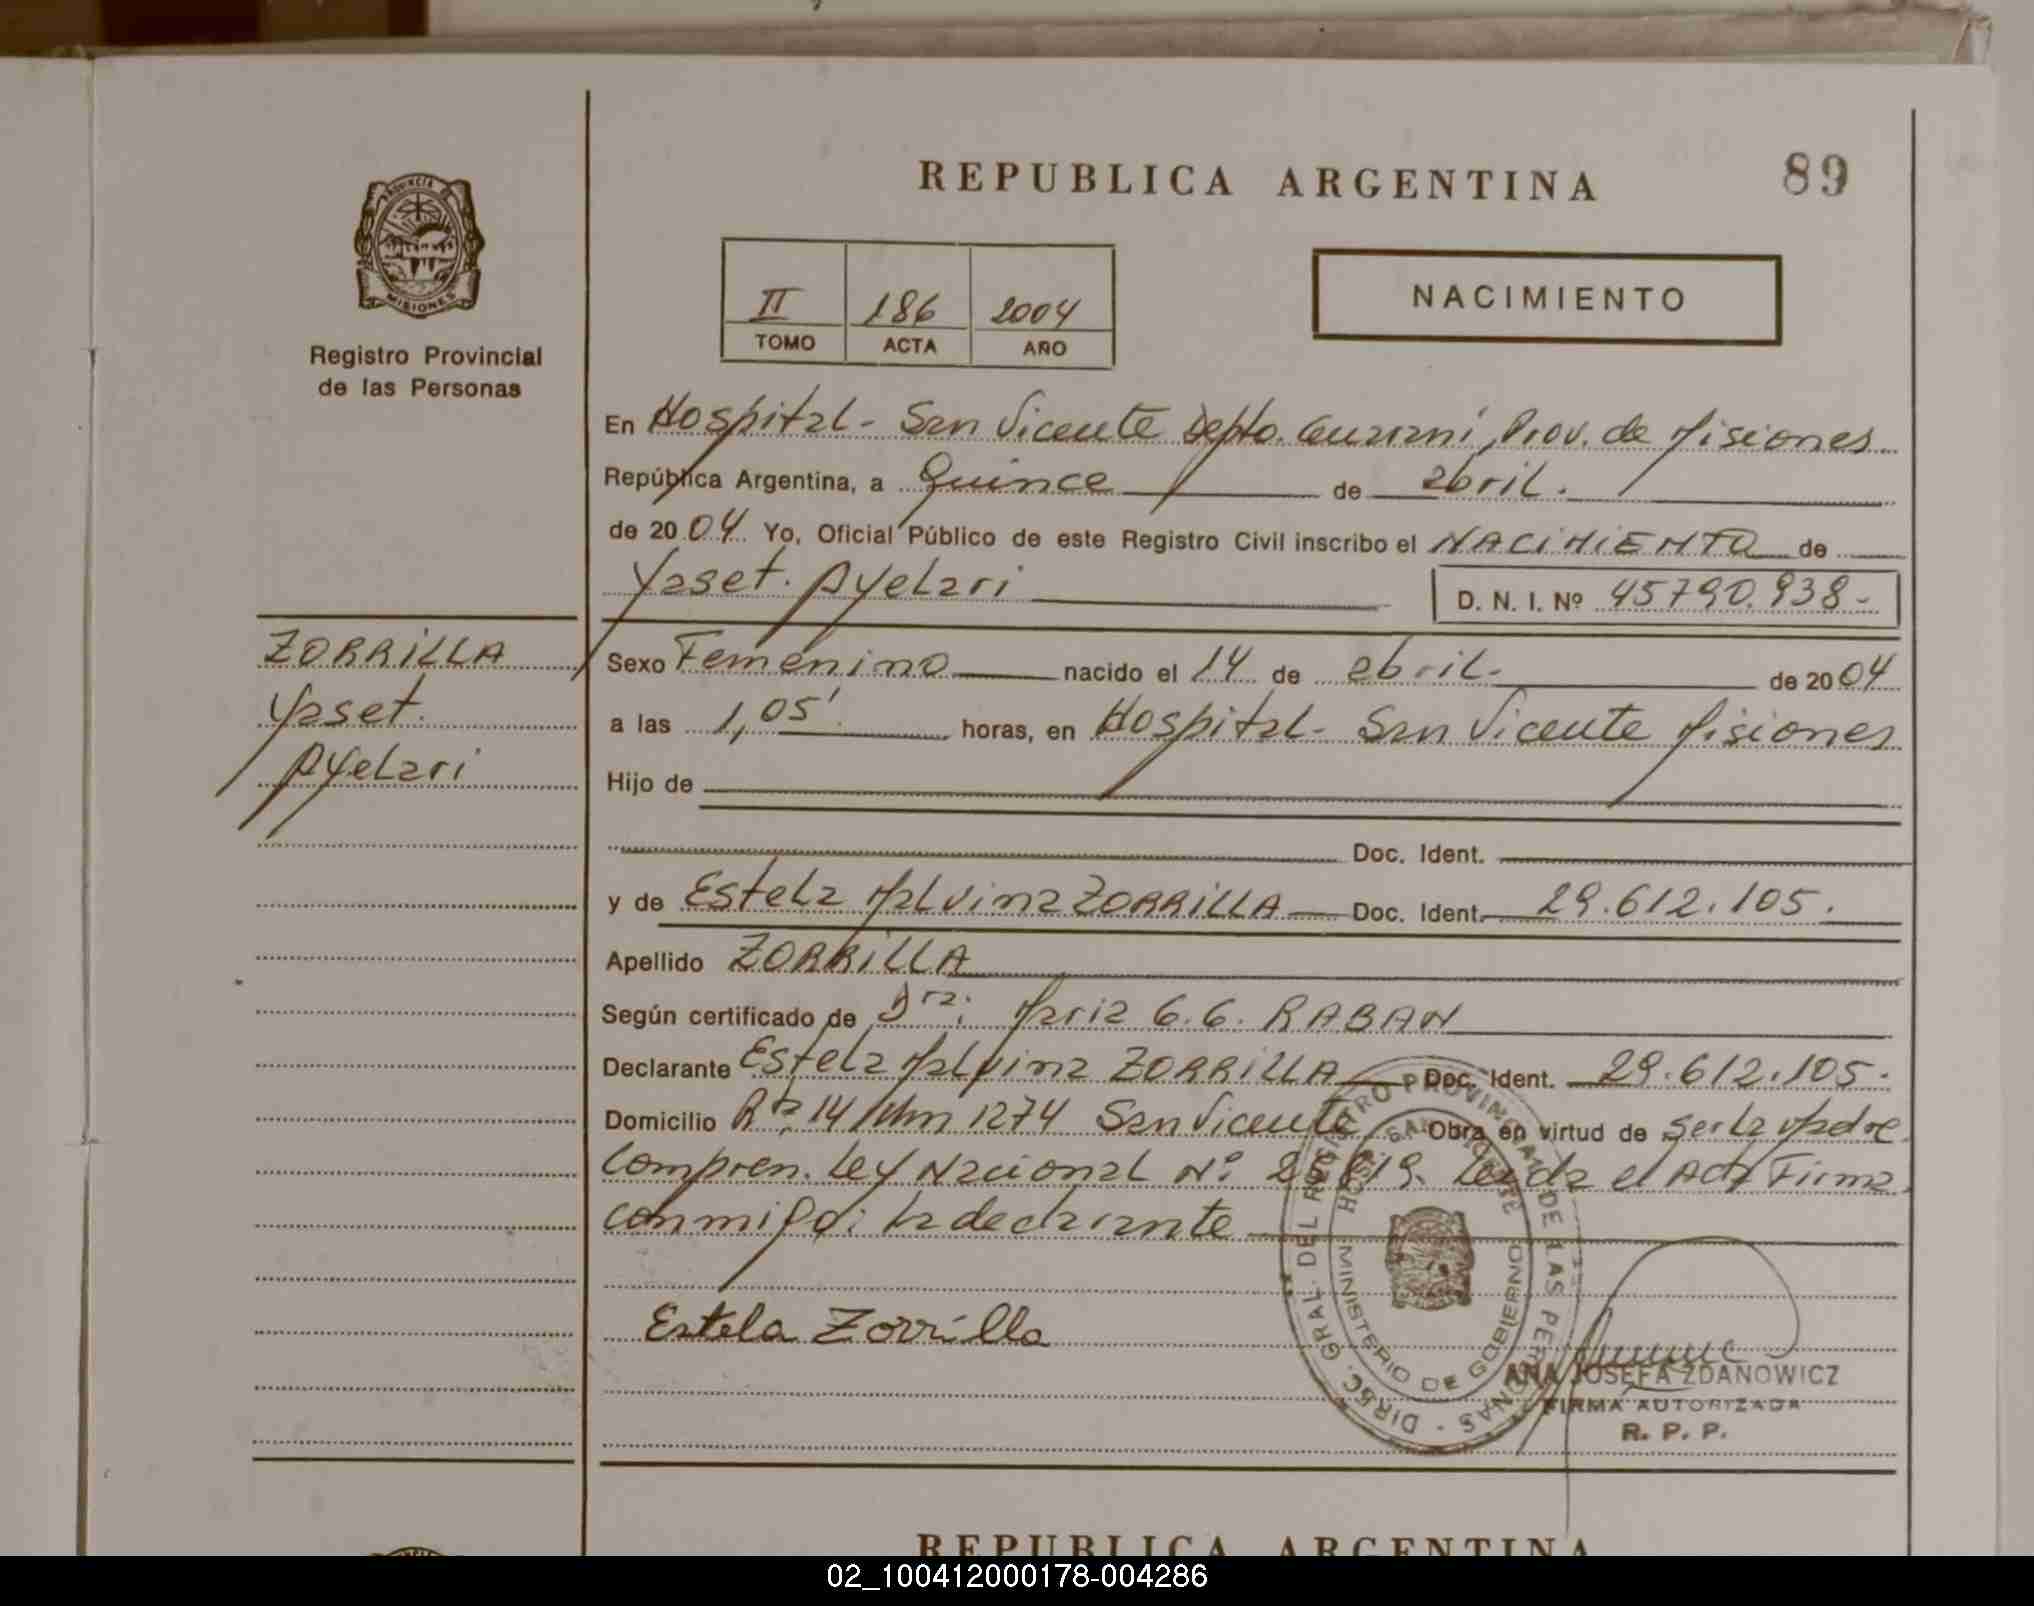 REPUBLICA ARGENTINA
89
PROVINCIA DE
MISIONES
Registro Provincial
de las Personas
II 186 2004
TOMO ACTA AÑO
NACIMIENTO
En Hospital - San Vicente Depto. Guaraní, Prov. de Misiones
República Argentina, a Quince de abril.
de 2004 Yo, Oficial Público de este Registro Civil inscribo el NACIMIENTO de
Yaset. Ayelari D. N. I. Nº 45790.938-
ZORRILLA
Yaset.
Ayelari
Sexo Femenino nacido el 14 de abril. de 2004
a las 1,05'. horas, en Hospital - San Vicente Misiones
Hijo de
Doc. Ident.
y de Estela Malvina ZORRILLA Doc. Ident. 29.612.105.
Apellido ZORRILLA
Según certificado de Dra. Maria G.G. RABAN
Declarante Estela Malvina ZORRILLA Doc. Ident. 29.612.105.
Domicilio Rta. 14 Km 1274 San Vicente Obra en virtud de ser la Madre
Compren. Ley Nacional Nº 25.819. Leída el Acta Firma
conmigo: la declarante
Estela Zorrilla
DIREC. GRAL. DEL REGISTRO PROVINCIAL DE LAS PERSONAS
HOSP. SAN VICENTE
MINISTERIO DE GOBIERNO
ANA JOSEFA ZDANOWICZ
FIRMA AUTORIZADA
R. P. P.
REPUBLICA ARGENTINA
02_100412000178-004286